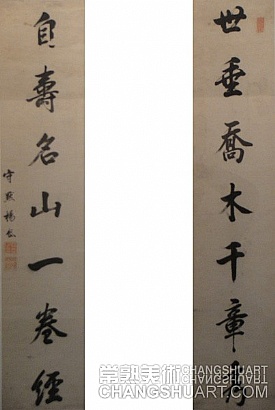 世垂喬木千章
自壽名山一卷經
守默楊
常熟美術
CHANGSHUART.COM